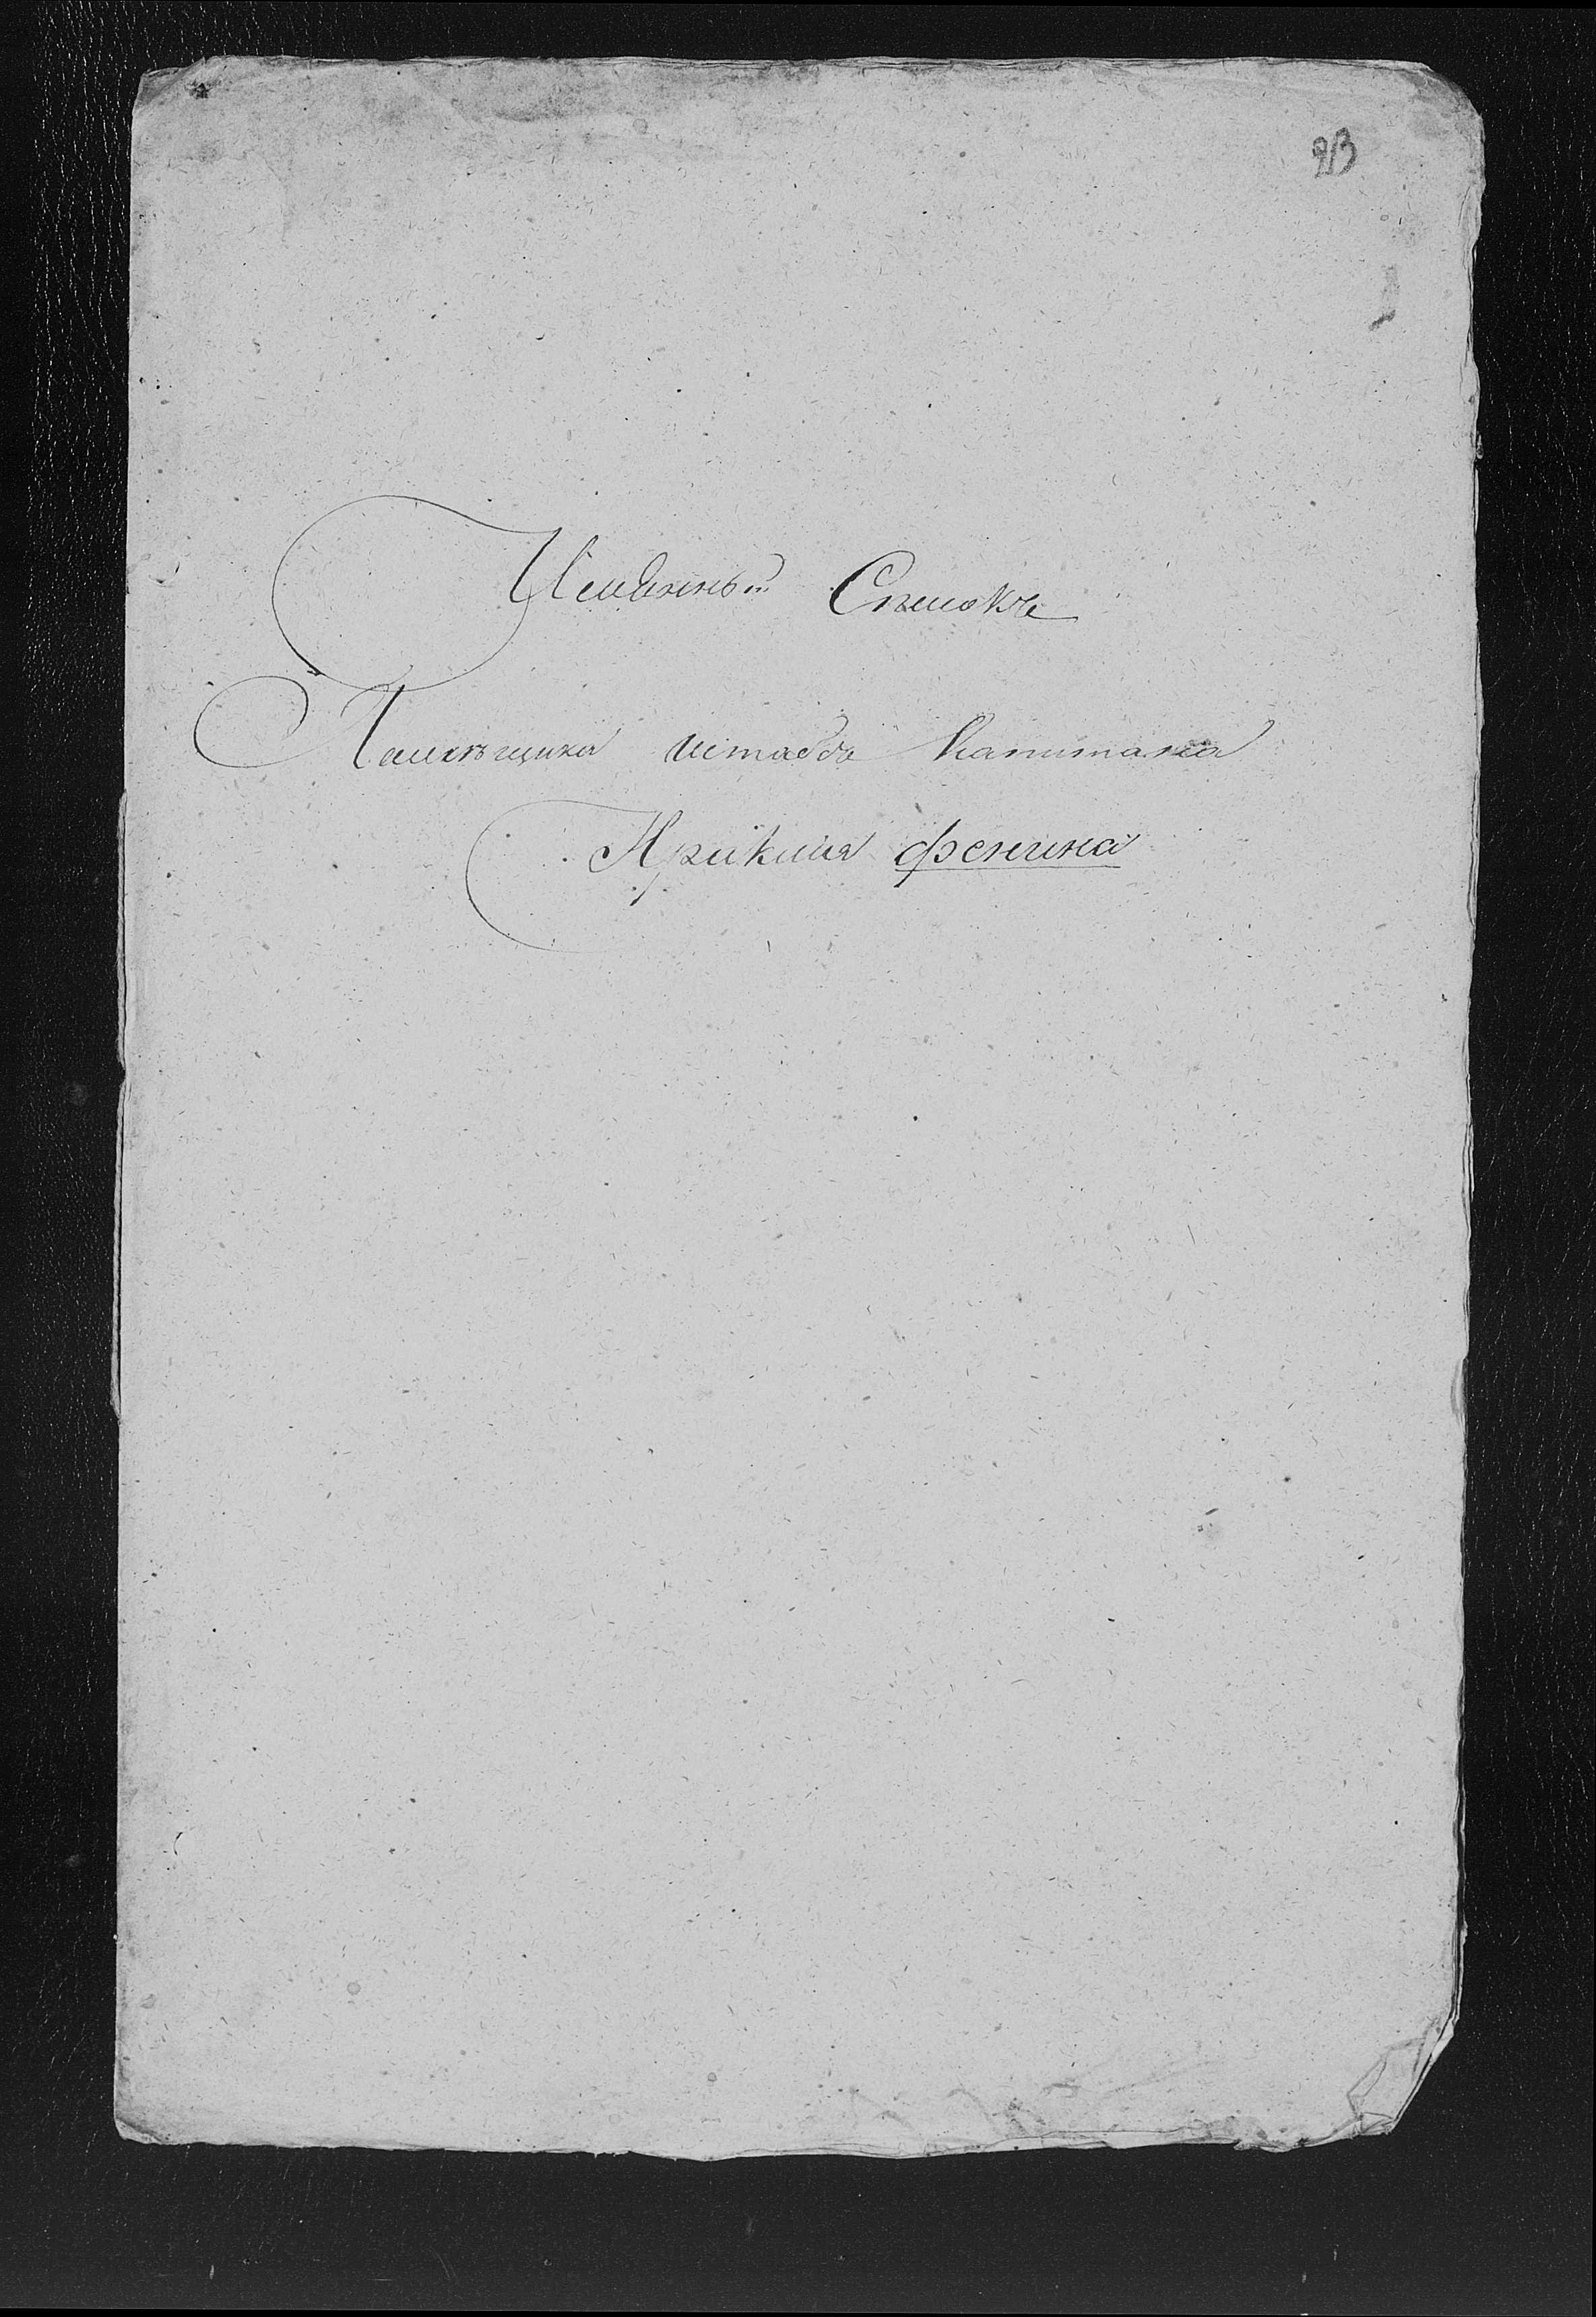 23
Имянный Списокъ
Помѣщика штабсъ Капитана
Ираклия Фенина